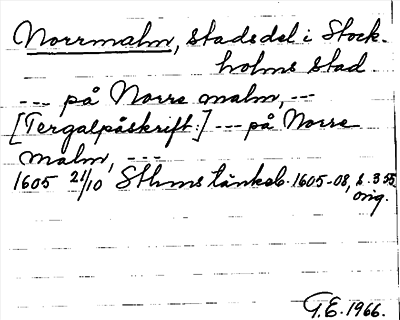 Norrmalm, stadsdel i Stock-
holms stad.
--- på Norre malm, ---
[Tergalpåskrift:] --- på Norre
malm, ---
1605 21/10 Sthms tänkeb. 1605-08, s. 355,
orig.
G.E. 1966.